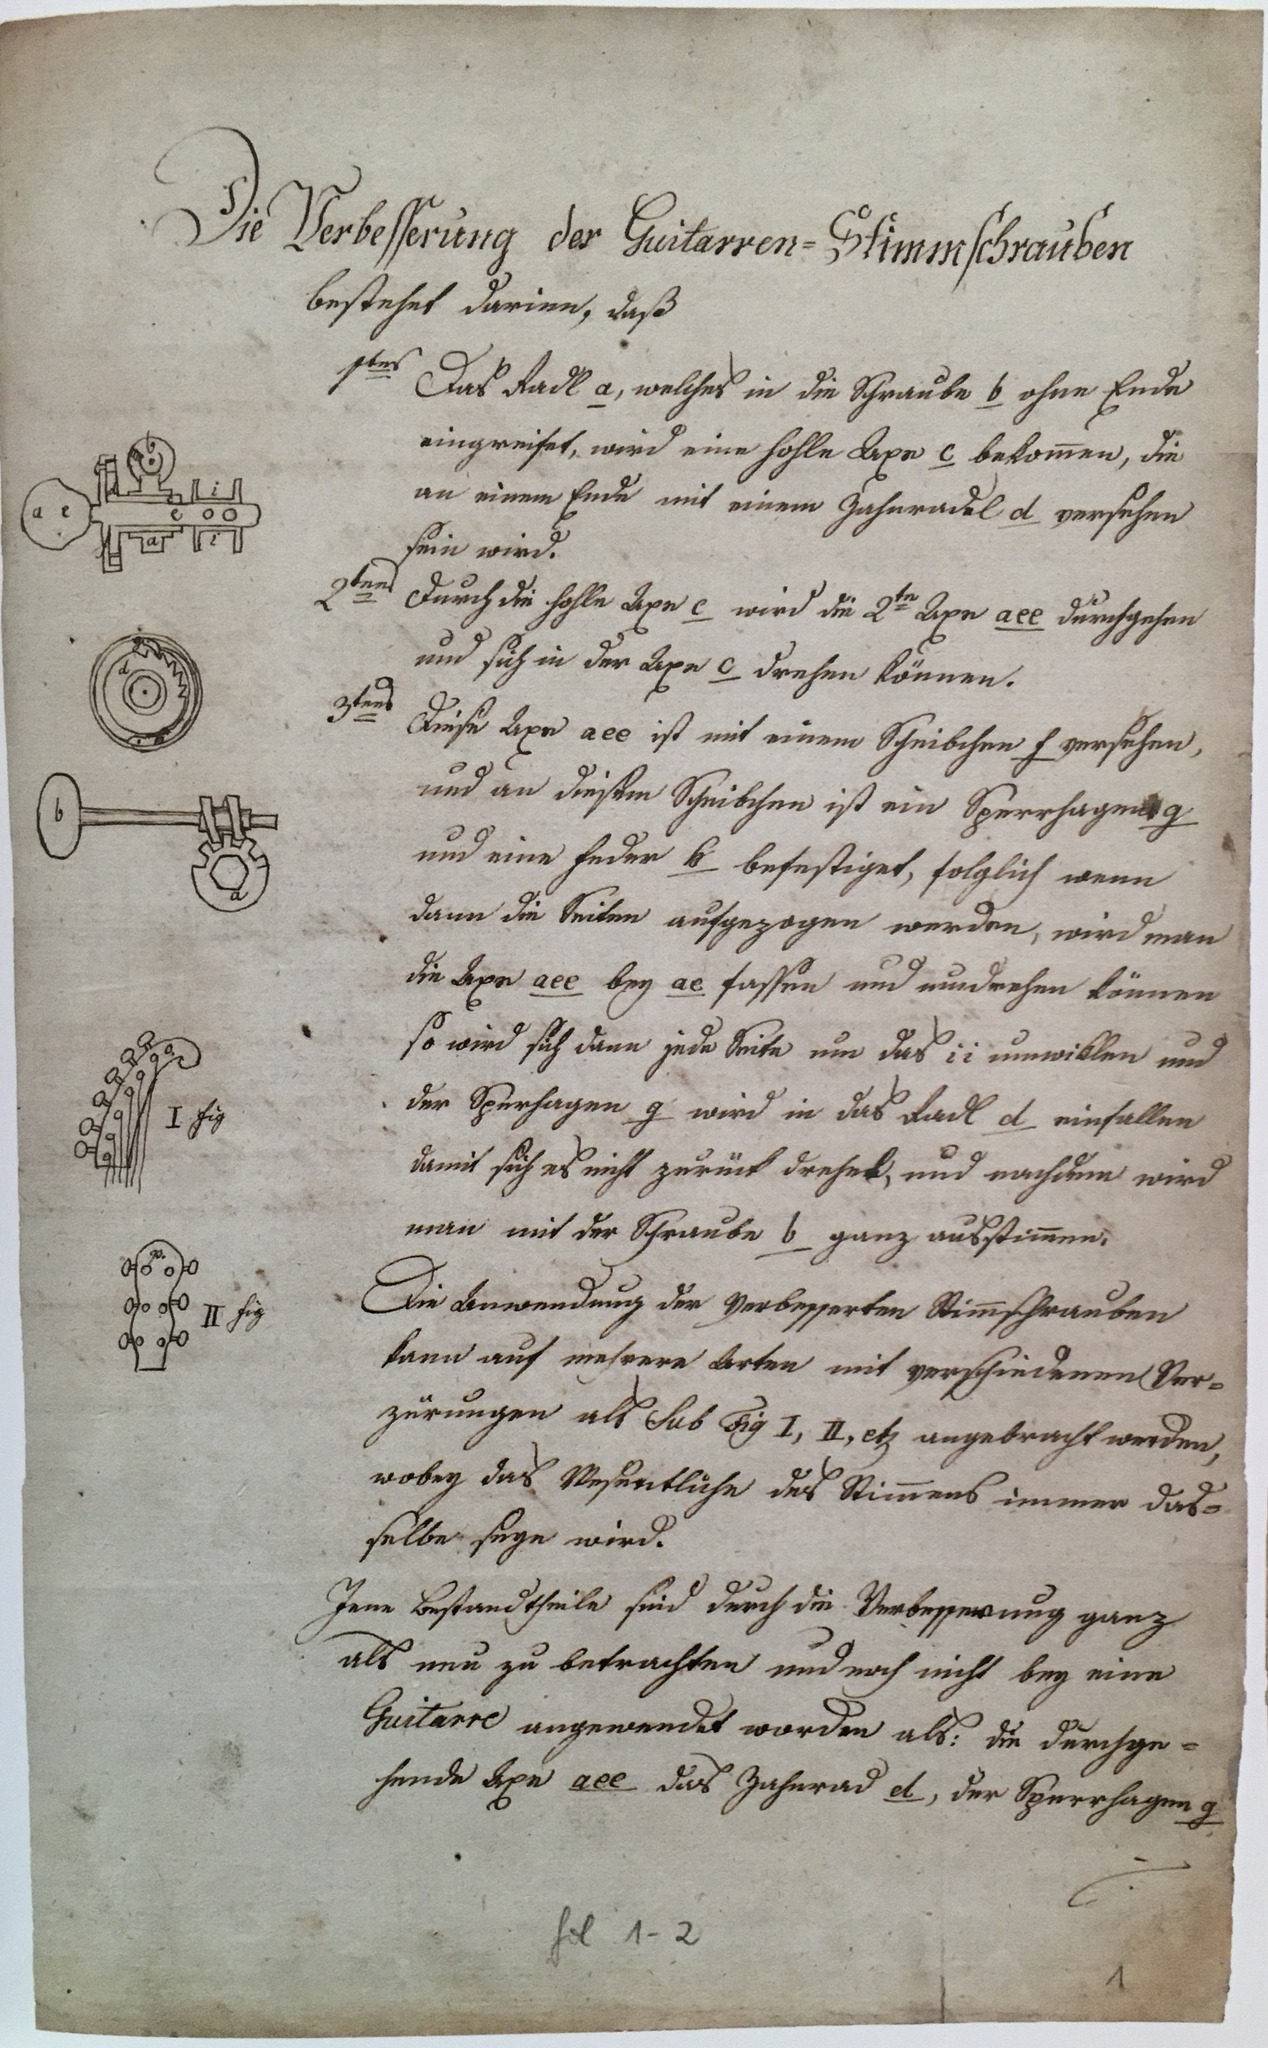 Die Verbesserung der Guitarren=Stimmschrauben
bestehet darinn, daß
1tens Das Radl a, welches in die Schraube b ohne Ende
eingreifet, wird eine hohle Axe c bekom̄en, die
an einem Ende mit einem Zahnradel d versehen
sein wird.
2tens Durch die hohle Axe c wird die 2te Axe aee durchgehen
und sich in der Axe c drehen können.
3tens Diese Axe aee ist mit einem Scheibchen f versehen,
und an diesem Scheibchen ist ein Sperrhagen g
und eine Feder k befestiget, folglich wenn
dann die Seiten aufgezogen werden, wird man
die Axe aee bey ae fassen und umdrehen können
so wird sich dann jede Seite um das ii umwiklen und
der Sperhagen g wird in das Radl d einfallen
damit sich es nicht zurück drehet, und nachdem wird
man mit der Schraube b ganz ausstim̄en.
Die Anwendung der verbesserten Stim̄schrauben
kann auf mehrere Arten mit verschiedenen Ver=
zürungen als Sub Fig I, II, etz angebracht werden,
wobey das Wesentliche des Stim̄ens immer das=
selbe seye wird.
Jene Bestandtheile sind durch die Verbesserung ganz
als neu zu betrachten und noch nicht bey eine
Guitarre angewendet worden als: die durchge=
hende Axe aee das Zahnrad d, der Sperrhagen g
b
a e
c
i
a
i
d
b
a
I Fig
II Fig
fol 1-2
1